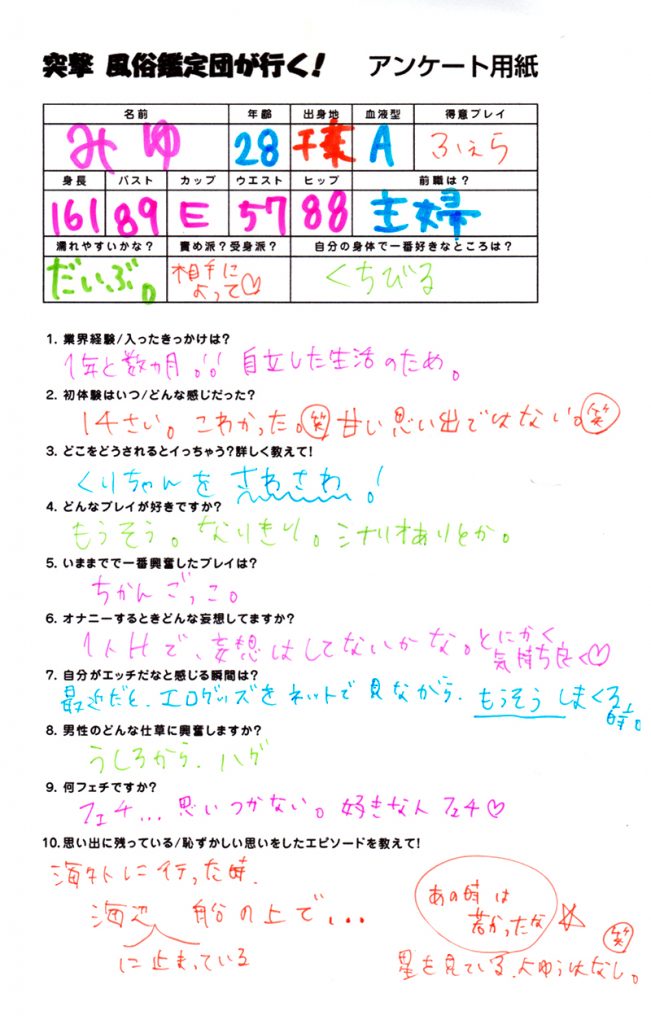 突撃 風俗鑑定団が行く! アンケート用紙
名前 年齢 出身地 血液型 得意プレイ
みゆ 28 千葉 A ふぇら
身長 バスト カップ ウエスト ヒップ 前職は?
161 89 E 57 88 主婦
濡れやすいかな? 責め派?受身派? 自分の身体で一番好きなところは?
だいぶ。 相手によって♡ くちびる
1. 業界経験/入ったきっかけは?
1年と数ヵ月!! 自立した生活のため。
2. 初体験はいつ/どんな感じだった?
14さい。こわかった。笑 甘い思い出ではない。笑
3. どこをどうされるとイっちゃう?詳しく教えて!
くりちゃんを さわさわ!
4. どんなプレイが好きですか?
もうそう。なりきり。シナリオありとか。
5. いままでで一番興奮したプレイは?
ちかんごっこ。
6. オナニーするときどんな妄想してますか?
1人Hで、妄想はしてないかな。とにかく
気持ち良く♡
7. 自分がエッチだなと感じる瞬間は?
最近だと、エログッズをネットで見ながら、もうそうしまくる
時。
8. 男性のどんな仕草に興奮しますか?
うしろから、ハグ
9. 何フェチですか?
フェチ...思いつかない。好きな人フェチ♡
10. 思い出に残っている/恥ずかしい思いをしたエピソードを教えて!
海外に行った時、
海辺 船の上で...
に止まっている
あの時は
若かったな☆
笑
星を見ている、よゆうはなし。